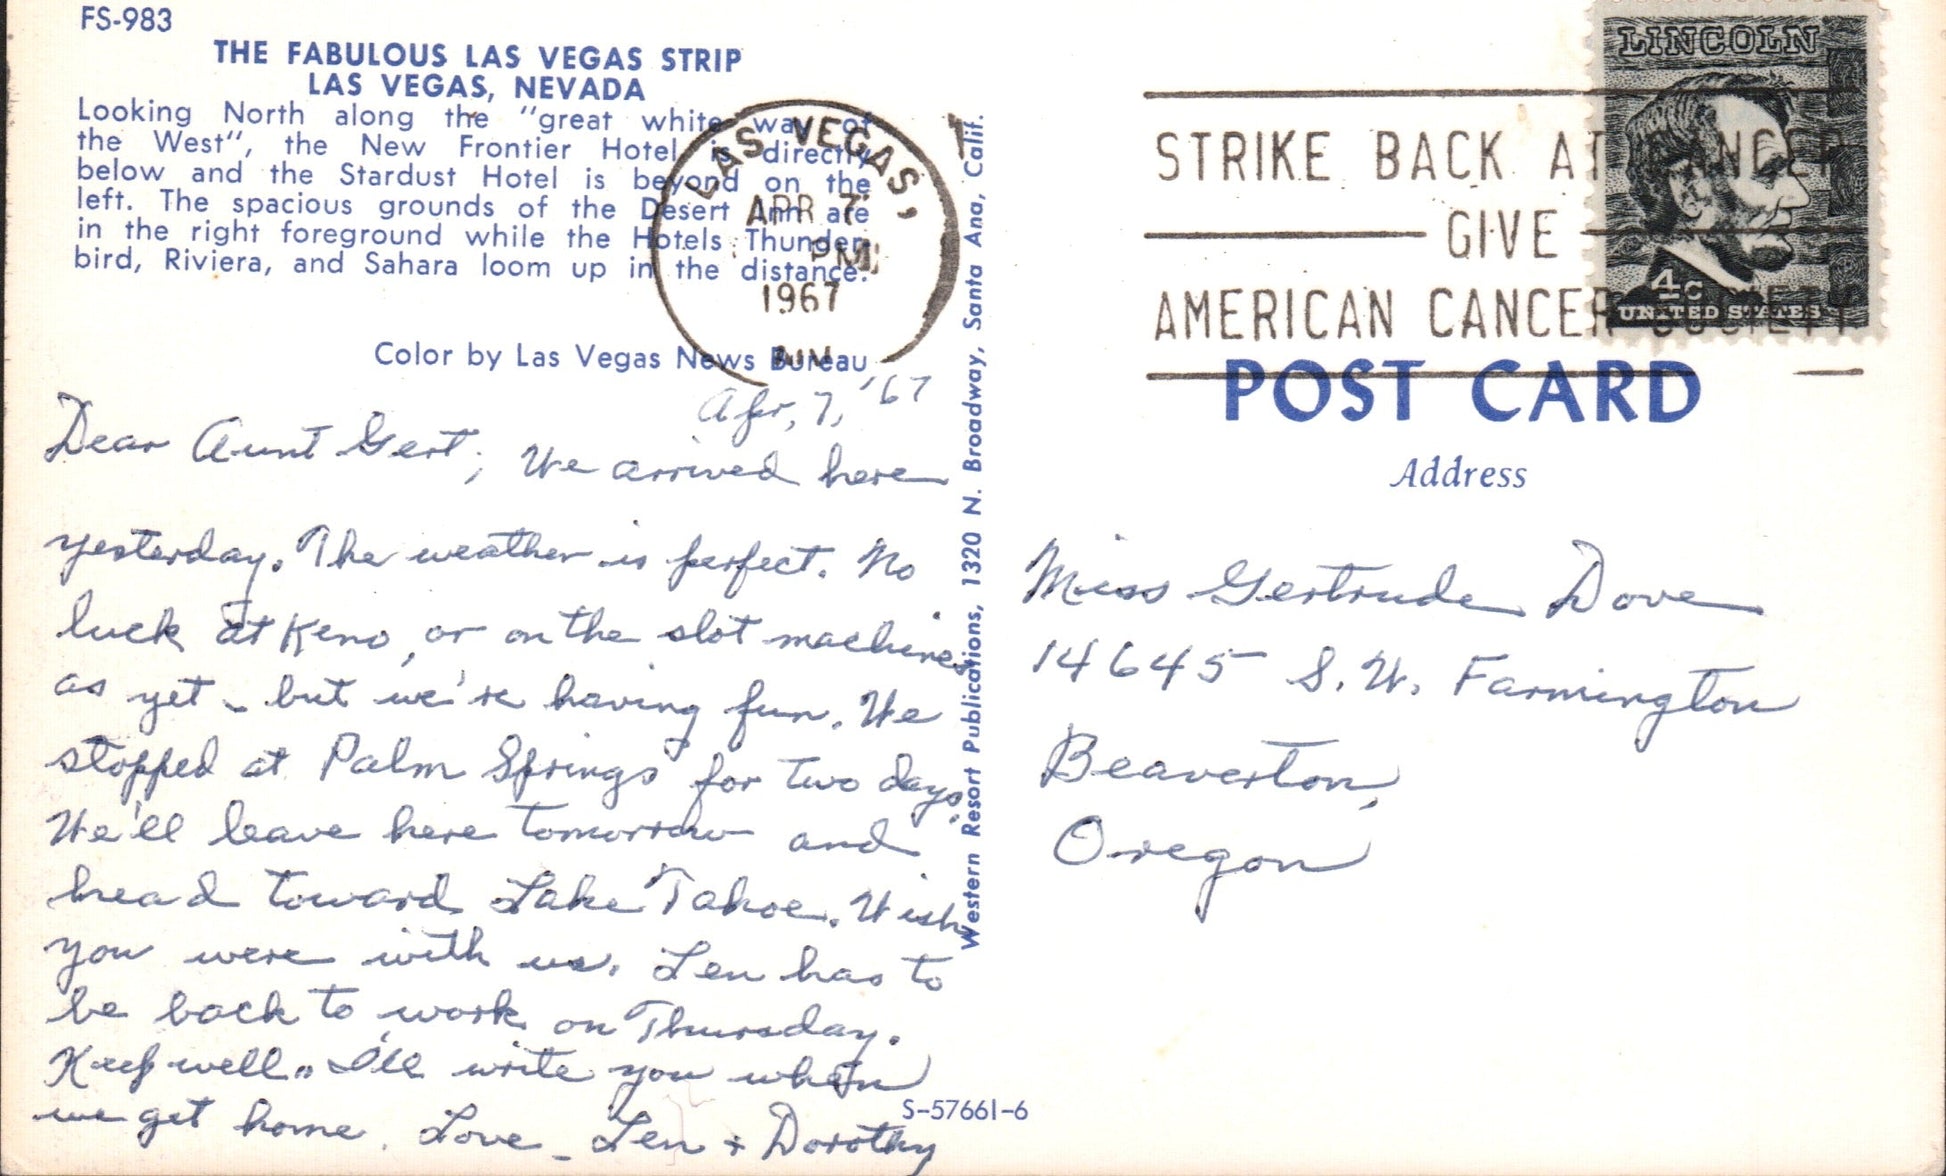 FS-983
THE FABULOUS LAS VEGAS STRIP
LAS VEGAS, NEVADA
Looking North along the "great white way of
the West", the New Frontier Hotel is directly
below and the Stardust Hotel is beyond on the
left. The spacious grounds of the Desert Inn are
in the right foreground while the Hotels Thunder-
bird, Riviera, and Sahara loom up in the distance.
Color by Las Vegas News Bureau
LAS VEGAS,
APR 7
PM
1967
Apr, 7, '67
Dear Aunt Gert, We arrived here
yesterday. The weather is perfect. No
luck at Keno, or on the slot machines
as yet - but we're having fun. We
stopped at Palm Springs for two days.
We'll leave here tomorrow and
head toward Lake Tahoe. Wish
you were with us. Len has to
be back to work on Thursday.
Keep well.. I'll write you when
we get home. Love - Len + Dorothy
Western Resort Publications, 1320 N. Broadway, Santa Ana, Calif.
S-57661-6
STRIKE BACK AT CANCER
GIVE
AMERICAN CANCER SOCIETY
LINCOLN
4c
UNITED STATES
POST CARD
Address
Miss Gertrude Dove
14645 S.W. Farmington
Beaverton,
Oregon